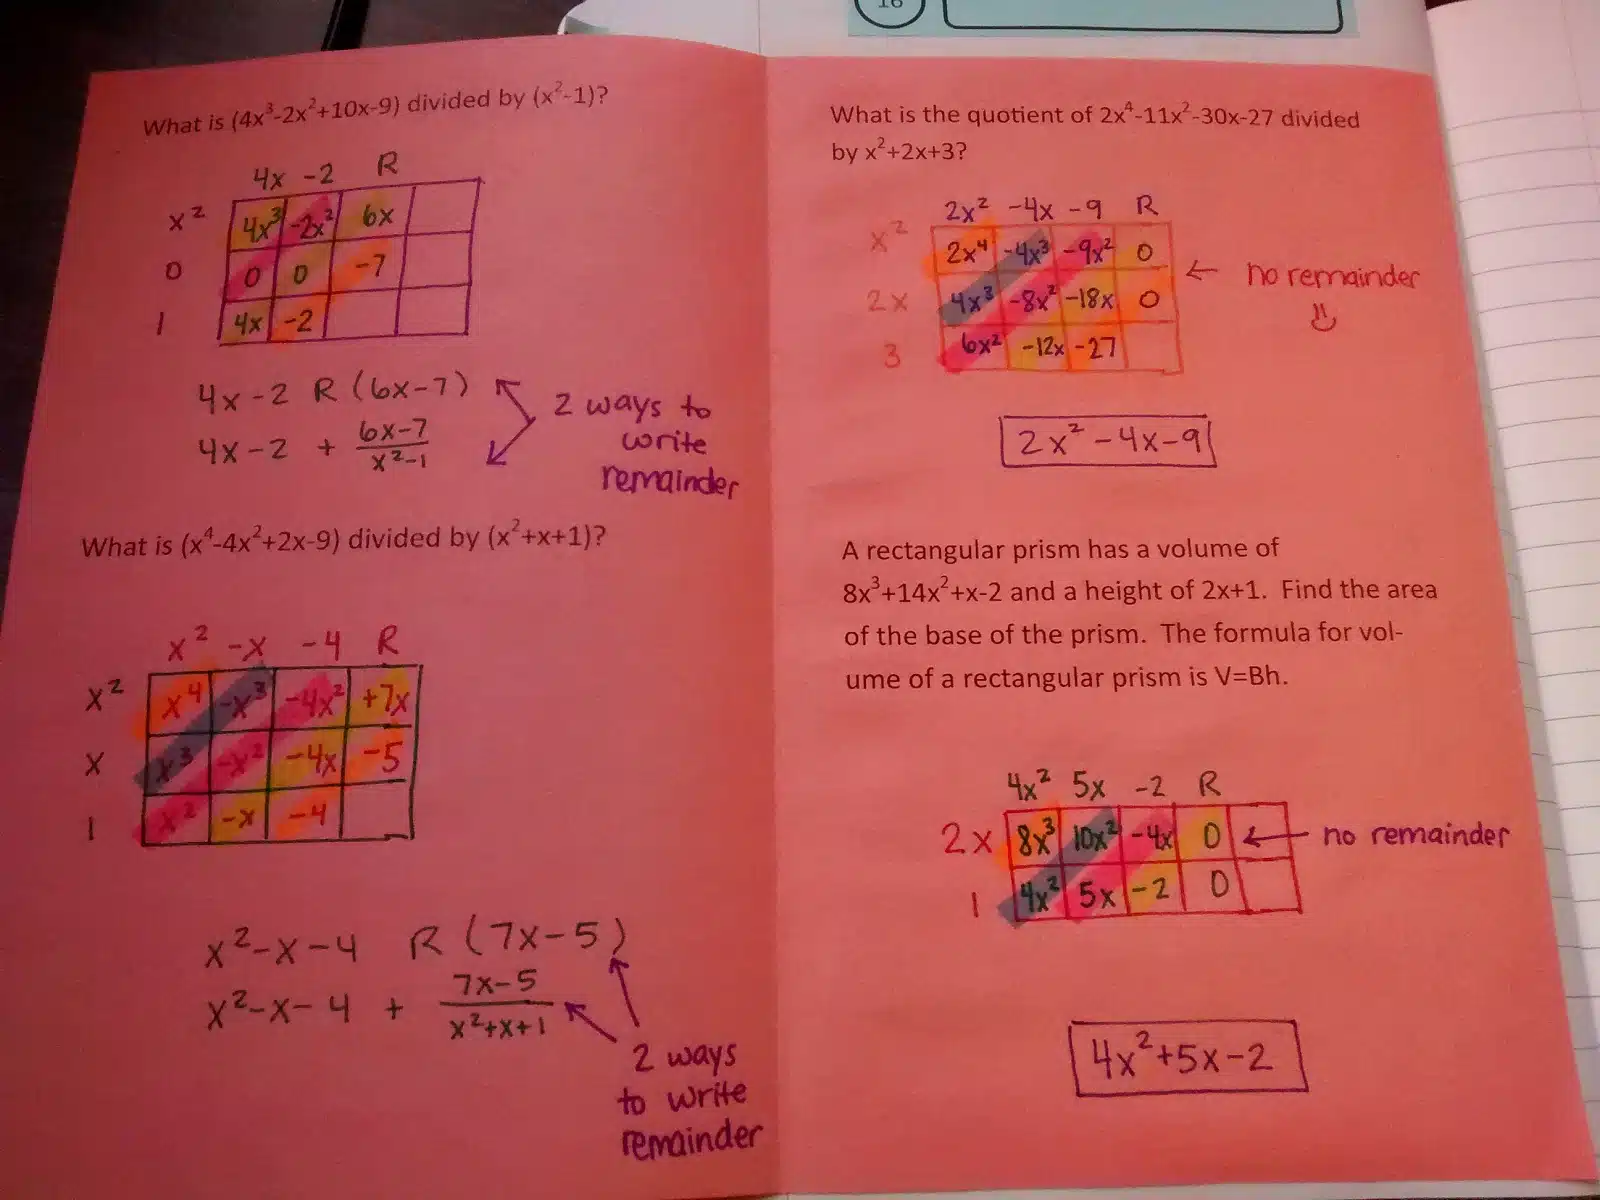 16
What is (4x³-2x²+10x-9) divided by (x²-1)?
4x -2 R
x² 4x³ -2x² 6x
0 0 0 -7
1 4x -2
4x-2 R (6x-7)
4x-2 + (6x-7)/(x²-1)
2 ways to
write
remainder
What is (x⁴-4x²+2x-9) divided by (x²+x+1)?
x² -x -4 R
x² x⁴ -x³ -4x² +7x
x x³ -x² -4x -5
1 x² -x -4
x²-x-4 R (7x-5)
x²-x-4 + (7x-5)/(x²+x+1)
2 ways
to write
remainder
What is the quotient of 2x⁴-11x²-30x-27 divided
by x²+2x+3?
2x² -4x -9 R
x² 2x⁴ -4x³ -9x² 0
2x 4x³ -8x² -18x 0
3 6x² -12x -27
← no remainder
2x²-4x-9
A rectangular prism has a volume of
8x³+14x²+x-2 and a height of 2x+1. Find the area
of the base of the prism. The formula for vol-
ume of a rectangular prism is V=Bh.
4x² 5x -2 R
2x 8x³ 10x² -4x 0 ← no remainder
1 4x² 5x -2 0
4x²+5x-2